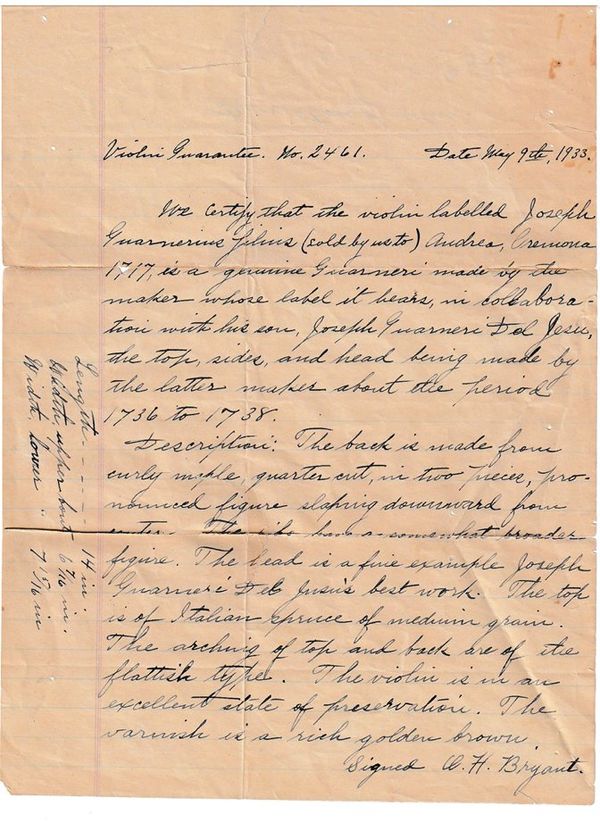 Violin Guarantee. No. 2461. Date May 9th, 1933.
We certify that the violin labelled Joseph
Guarnerius filius (sold by us to) Andrea, Cremona
1717, is a genuine Guarneri made by the
maker whose label it bears, in collabora-
tion with his son, Joseph Guarneri Del Jesu,
the top, sides, and head being made by
the latter maker about the period
1736 to 1738.
Description: The back is made from
curly maple, quarter cut, in two pieces, pro-
nounced figure sloping downward from
center. The ribs have a somewhat broader
figure. The head is a fine example Joseph
Guarneri Del Jusu's best work. The top
is of Italian spruce of medium grain.
The arching of top and back are of the
flattish type. The violin is in an
excellent state of preservation. The
varnish is a rich golden brown.
Signed O. H. Bryant.
Length - - - - - 14 in.
Width, upper bout 6 9/16 in.
Width lower " 7 15/16 in